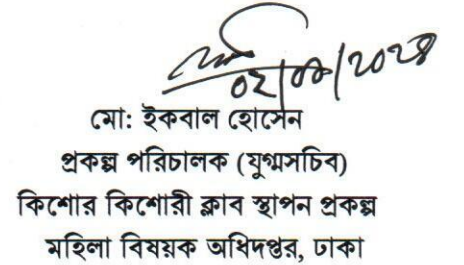 মো: ইকবাল হোসেন
প্রকল্প পরিচালক (যুগ্মসচিব)
কিশোর কিশোরী ক্লাব স্থাপন প্রকল্প
মহিলা বিষয়ক অধিদপ্তর, ঢাকা